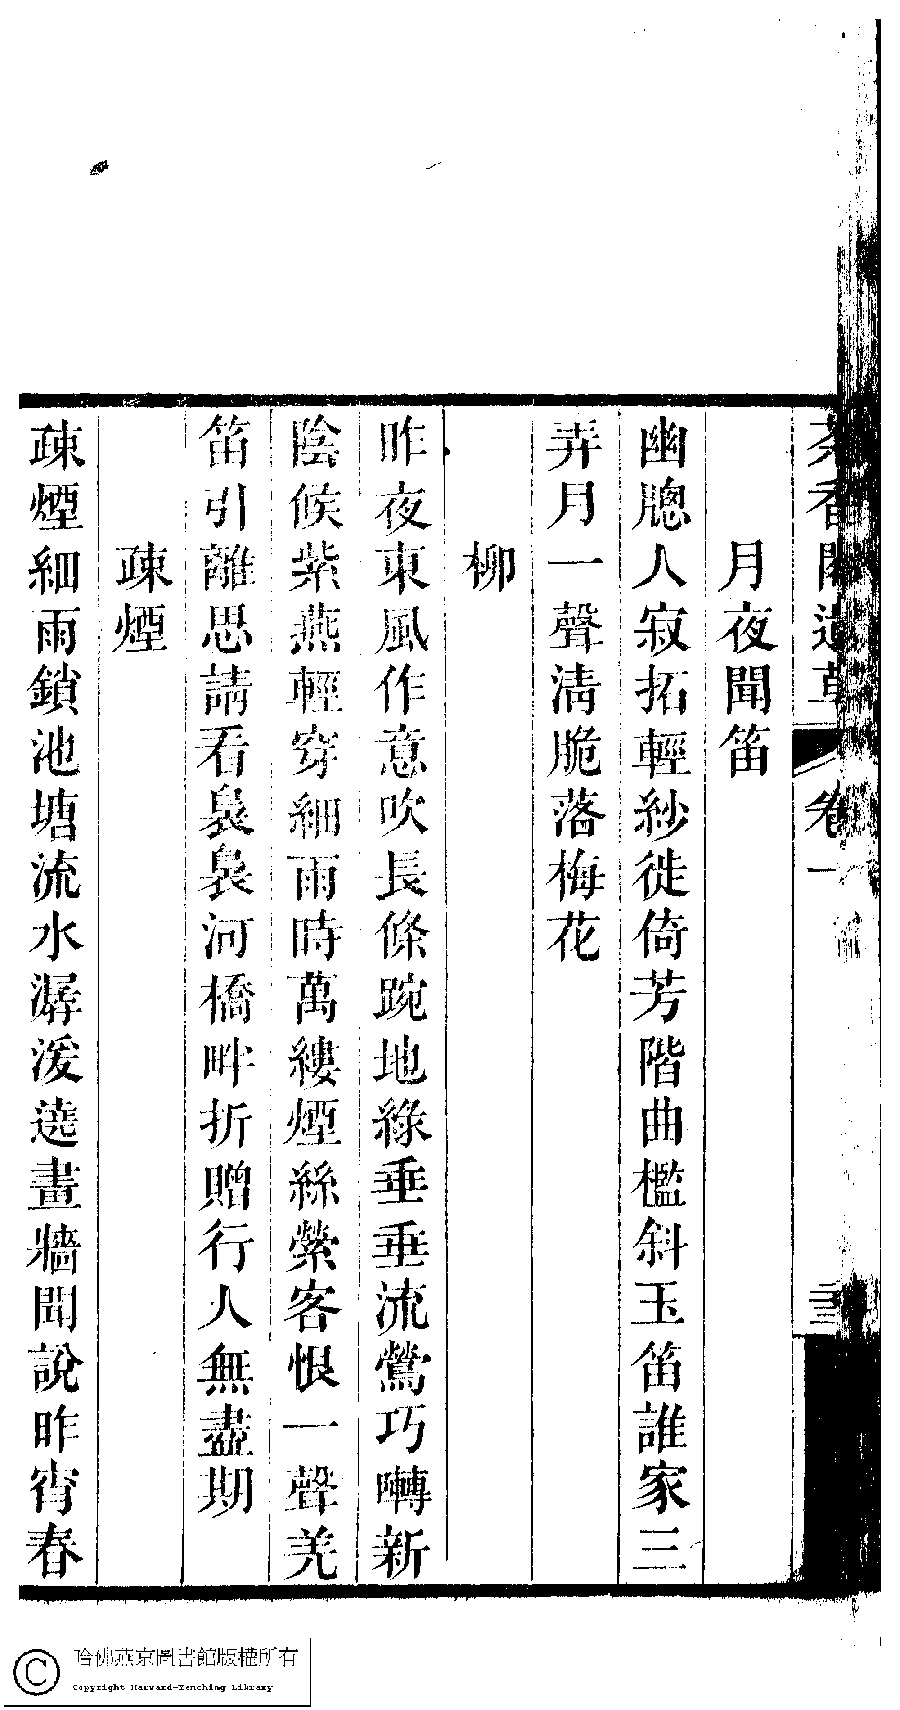 月夜聞笛
幽牕人寂拓輕紗徙倚芳階曲檻斜玉笛誰家三
弄月一聲淸脆落梅花
柳
昨夜東風作意吹長條踠地綠垂垂流鶯巧囀新
陰候紫燕輕穿細雨時萬縷煙絲縈客恨一聲羌
笛引離思請看裊裊河橋畔折贈行人無盡期
疎煙
疎煙細雨鎖池塘流水潺湲遶畫牆聞說昨宵春
哈佛燕京圖書館版權所有
Copyright Harvard-Yenching Library